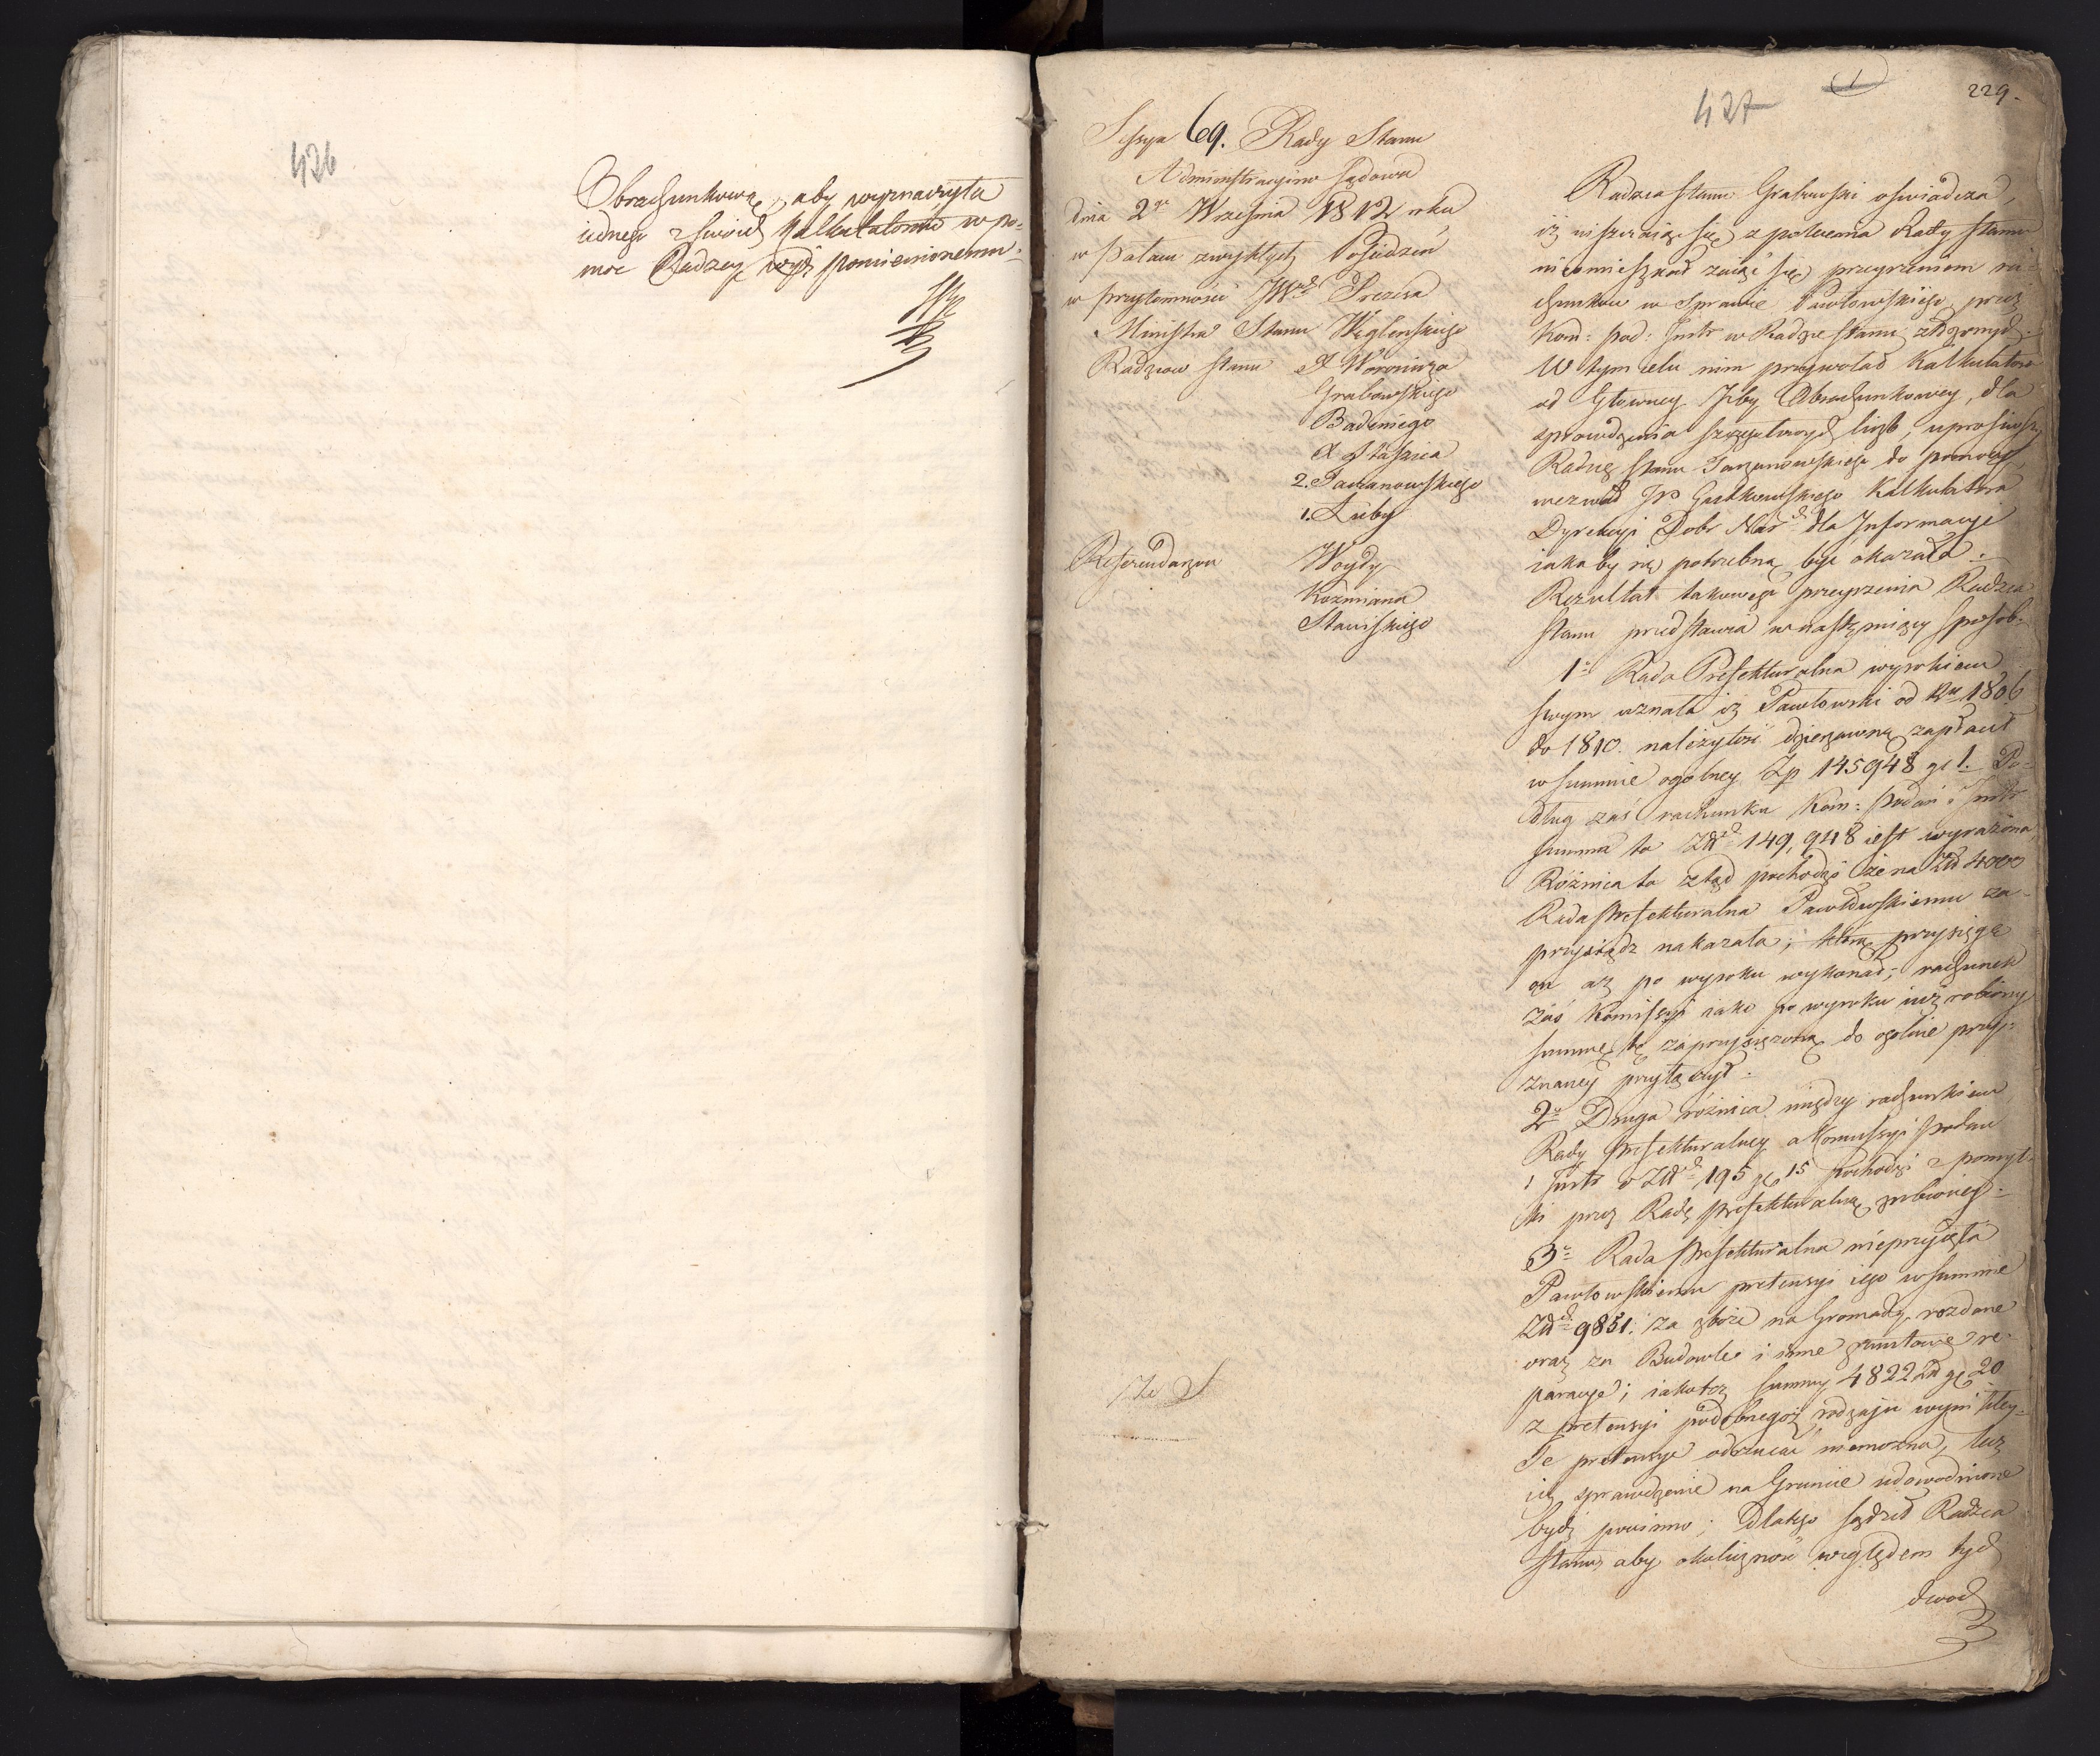 426
Obrachunkową, aby wyznaczyła
iednego z swoich Kalkulatorów w po-
moc Radzcy wyż pomienionemu.
427
1
229.
Sessya 69. Rady Stanu
Administracyino Sądowa
dnia 2go Września 1812 roku
w Pałacu zwykłych Posiedzeń
w przytomności Prezesa
Ministra Stanu Węglenskiego
Radzców Stanu X Woronicza
Grabowskiego
Badeniego
X Staszica
2. Tarzanowskiego
1. Łuby
Referendarzów Woydy
Kozmiana
Stawiskiego
Radzca Stanu Grabowski oświadcza,
iż uiszczaiąc się z polecenia Rady Stanu
niemieszkał zaiąć się przeyrzeniem ra-
chunków w Sprawie Pawłowskiego przez
Kom: Pod: Instr w Radzie Stanu złożonych.
W tym celu nim przywołał Kalkulatora
od Głowney Izby Obrachunkowey, dla
sprawdzenia szczegulnych liczb, uprosiwszy
Radzcę Stanu Tarzanowskiego do pomocy
wezwał JP Gutkowskiego Kalkulatora
Dyrekcyi Dobr Nard dla Informacyi
iaka by się potrzebną być okazała.
Rezultat takowego przeyrzenia Radzca
Stanu przedstawia w następuiący sposób.
1o Rada Prefekturalna wyrokiem
swym uznała iż Pawłowski od Ru 1806
do 1810. należytość dzierżawną zapłacił
w summie ogolney Zp 145948 gr 1. Po-
dług zaś rachunku Kom: Podań i Instr
summa ta Złd 149,948 iest wyrażona,
Różnica ta ztąd pochodzi że na Złd 4000
Rada Prefekturalna Pawłowskiemu za-
przysiądz nakazała; którą przysięgę
on aż po wyroku wykonał; rachunek
zaś Komissyi iako po wyroku iuż robiony
summę tę zaprzysiężoną do ogolnie przy-
znaney przyłączył.
2o Druga różnica między rachunkiem
Rady Prefekturalney a Komissyi Podan
i Instr o Złd 195 gr 15 pochodzi z pomył-
ki przez Radę Prefekturalną zrobioney.
3o Rada Prefekturalna nieprzyięła
Pawłowskiemu pretensyi iego w summie
Złd 9851. za zboże na Gromady rozdane
oraz za Budowle i inne gruntowe re-
paracye; iakotez summy 4822 Zł gr 20
z pretensyi podobnegoż rodzaju wynikłey.
Te pretensye odrzucać niemożna, lecz
ich sprawdzenie na Gruncie udowodnione
bydź powinno; Dlatego sądził Radzca
Stanu, aby okoliczność względem tych
dwoch